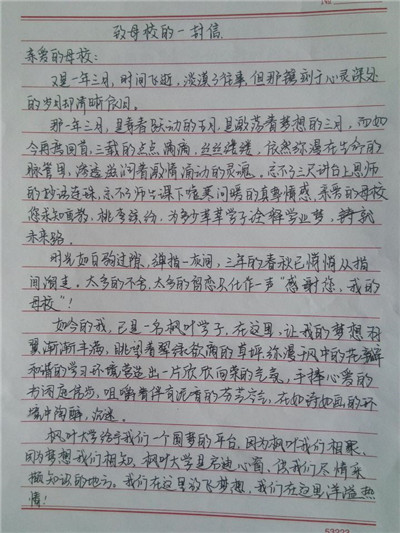 No
致母校的一封信
亲爱的母校:
又是一年三月,时间飞逝,淡漠了往事,但那镌刻于心灵深处
的岁月却清晰依旧。
那一年三月,是青春跃动的三月,是激荡着梦想的三月,而如
今再蓦回首,三载的点点滴滴,丝丝缕缕,依然弥漫在生命的
脉管里,浇透滋润着激情涌动的灵魂。忘不了三尺讲台上恩师
的妙语连珠,忘不了师生课下嘘寒问暖的真挚情感,亲爱的母校
您承知育教,桃李缤纷,为多少莘莘学子诠释学业梦,铸就
未来路。
时光如白驹过隙,弹指一灰间,三年的春秋已悄悄从指
间溜走。太多的不舍,太多的留恋只化作一声“感谢您,我的
母校”!
如今的我,已是一名枫叶学子,在这里,让我的梦想羽
翼渐渐丰满,眺望着翠绿欲滴的草坪,弥漫风中的花香,
和谐的学习环境营造出一片欣欣向荣的气氛,手捧心爱的
书闲庭信步,咀嚼着伴有泥香的芬芳空气,在如诗如画的环
境中陶醉,沉迷。
枫叶大学给予我们一个圆梦的平台,因为枫叶我们相聚,
因为梦想我们相知,枫叶大学是启迪心窗,供我们尽情采
撷知识的地方。我们在这里放飞梦想,我们在这里洋溢热
情!
53222